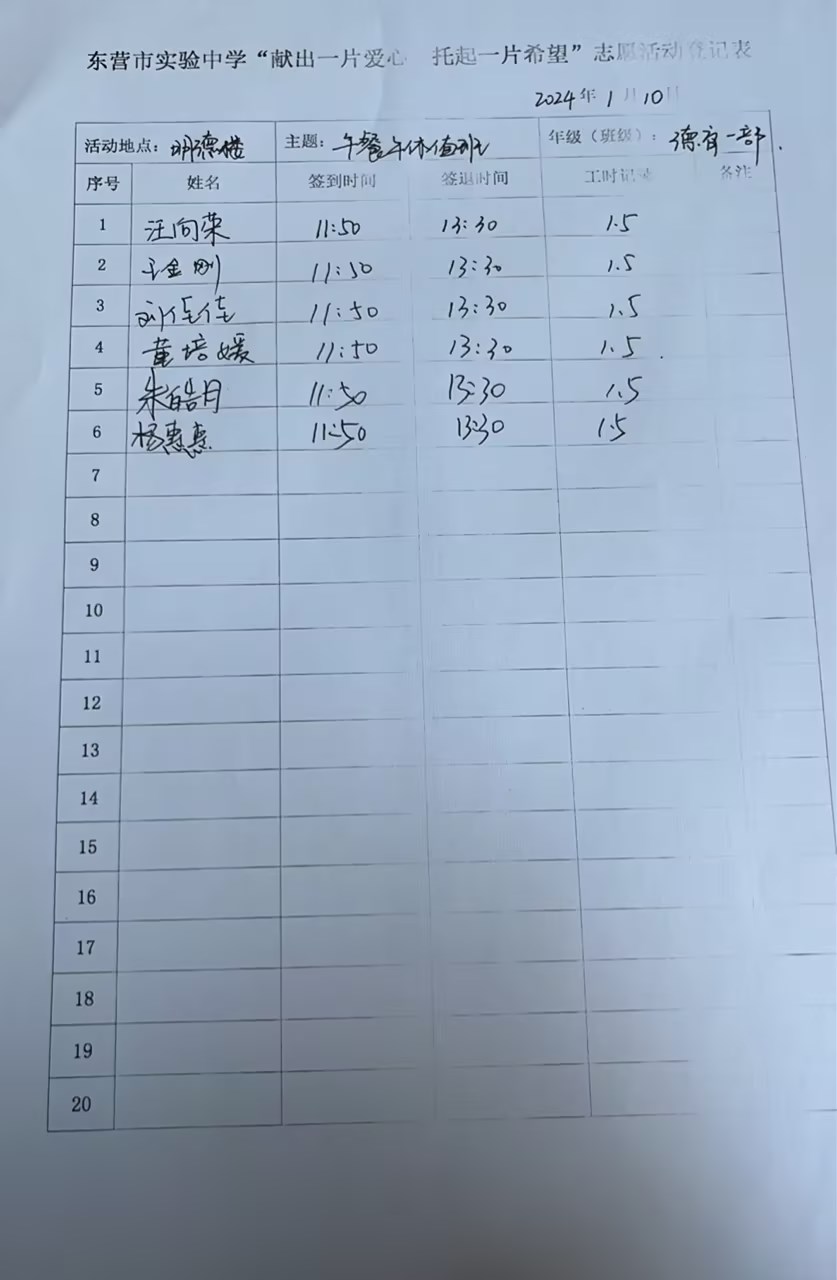 东营市实验中学“献出一片爱心 托起一片希望”志愿活动登记表
2024年1月10日
活动地点：明德楼 主题：午餐午休值班 年级（班级）：德育一部.
序号 姓名 签到时间 签退时间 工时记录 备注
1 汪向荣 11:50 13:30 1.5
2 金刚 11:50 13:30 1.5
3 刘佳佳 11:50 13:30 1.5
4 黄培媛 11:50 13:30 1.5
5 朱皓月 11:50 13:30 1.5
6 杨惠惠 11:50 13:30 1.5
7
8
9
10
11
12
13
14
15
16
17
18
19
20